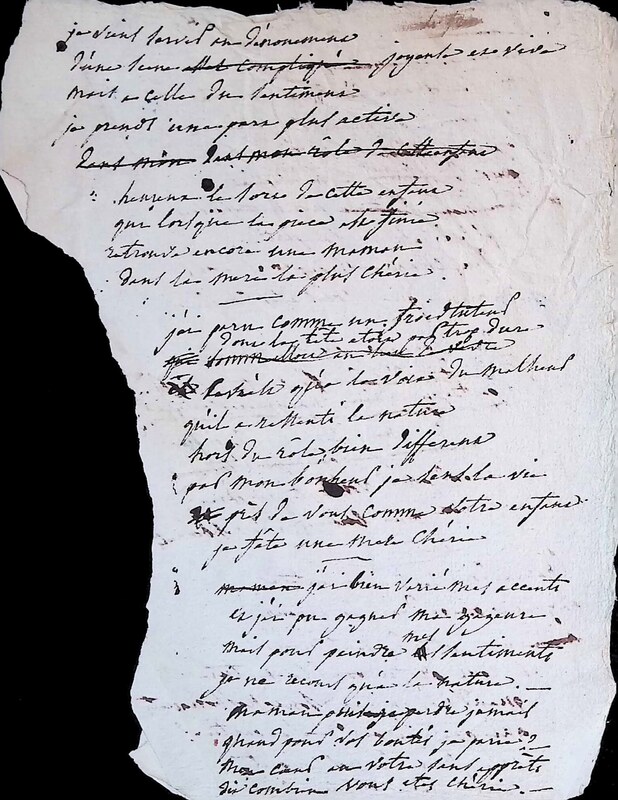 je viens servir au dénouement
d'une scene est compliquée joyeuse et vive
mais a celle du sentiment
je prends une part plus active
dans mon dans mon rôle de cette enfant
heureux le sort de cette enfant
qui lorsque la piece est finie
retrouve encore une maman
dans la mere la plus chérie
j'ai paru comme un froid tuteur
dont la tête etoit trop dure
comme un
qu'a la voix du malheur
qu'il a ressenti la nature
hors du rôle bien different
par mon bonheur je sens la vie
près de vous comme votre enfant
je fête une mere chérie
maman j'ai bien varié mes accents
et j'ai pu gagner ma gageure
mais pour peindre mes sentiments
je ne recours qu'a la nature
maman perdre jamais
quand pour vos bontés je parie
mon cœur au votre sans apprêts
dit combien vous etes chérie